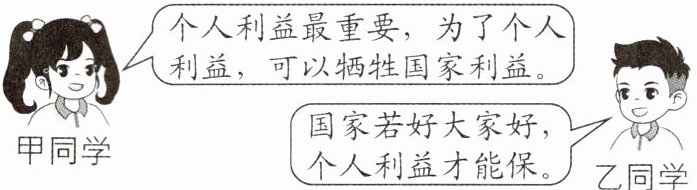 个人利益最重要，为了个人
利益，可以牺牲国家利益。
甲同学
国家若好大家好，
个人利益才能保。
乙同学